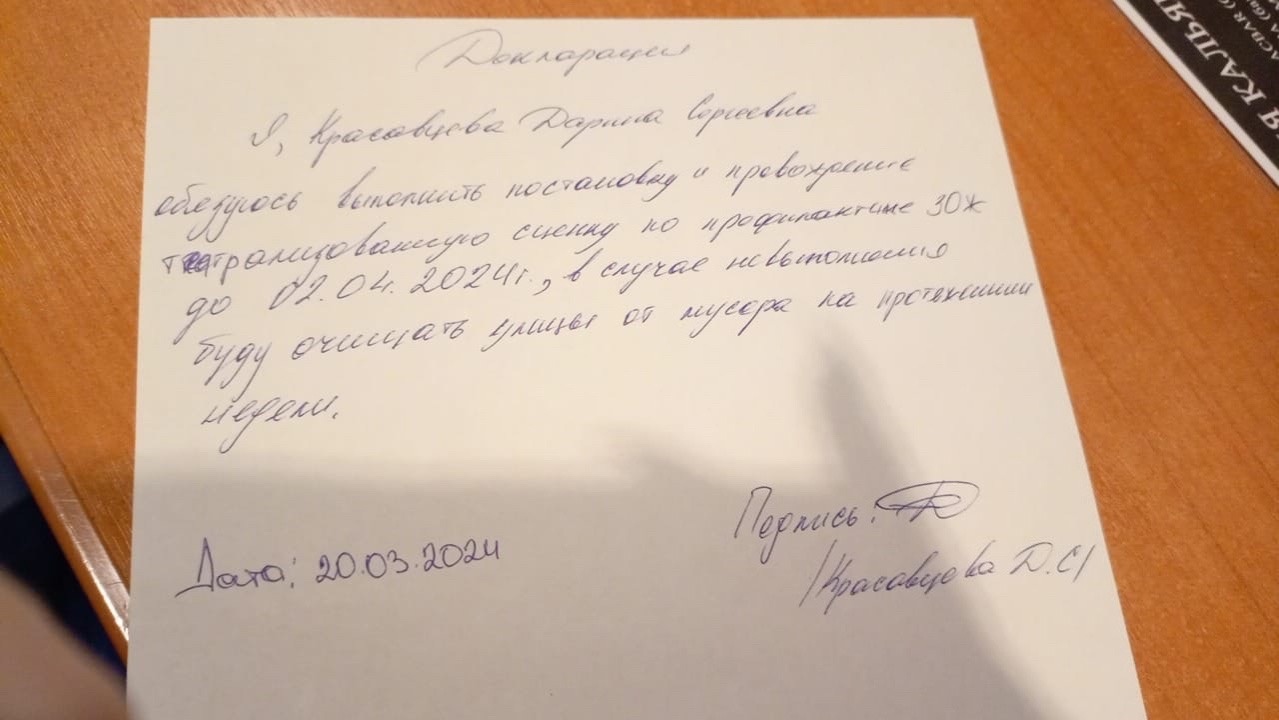 Докларация
Я, Красавцева Дарина Сергеевна
обязуюсь выполнить постановку и провохрение
театрализованную сценку по профилактике ЗОЖ
до 02.04. 2024г., в случае невыполнения
буду очищать улицы от мусора на протяжении
недели.
Подпись:
Дата: 20.03.2024
/Красавцева Д.С/
Я КАЛЬЯ